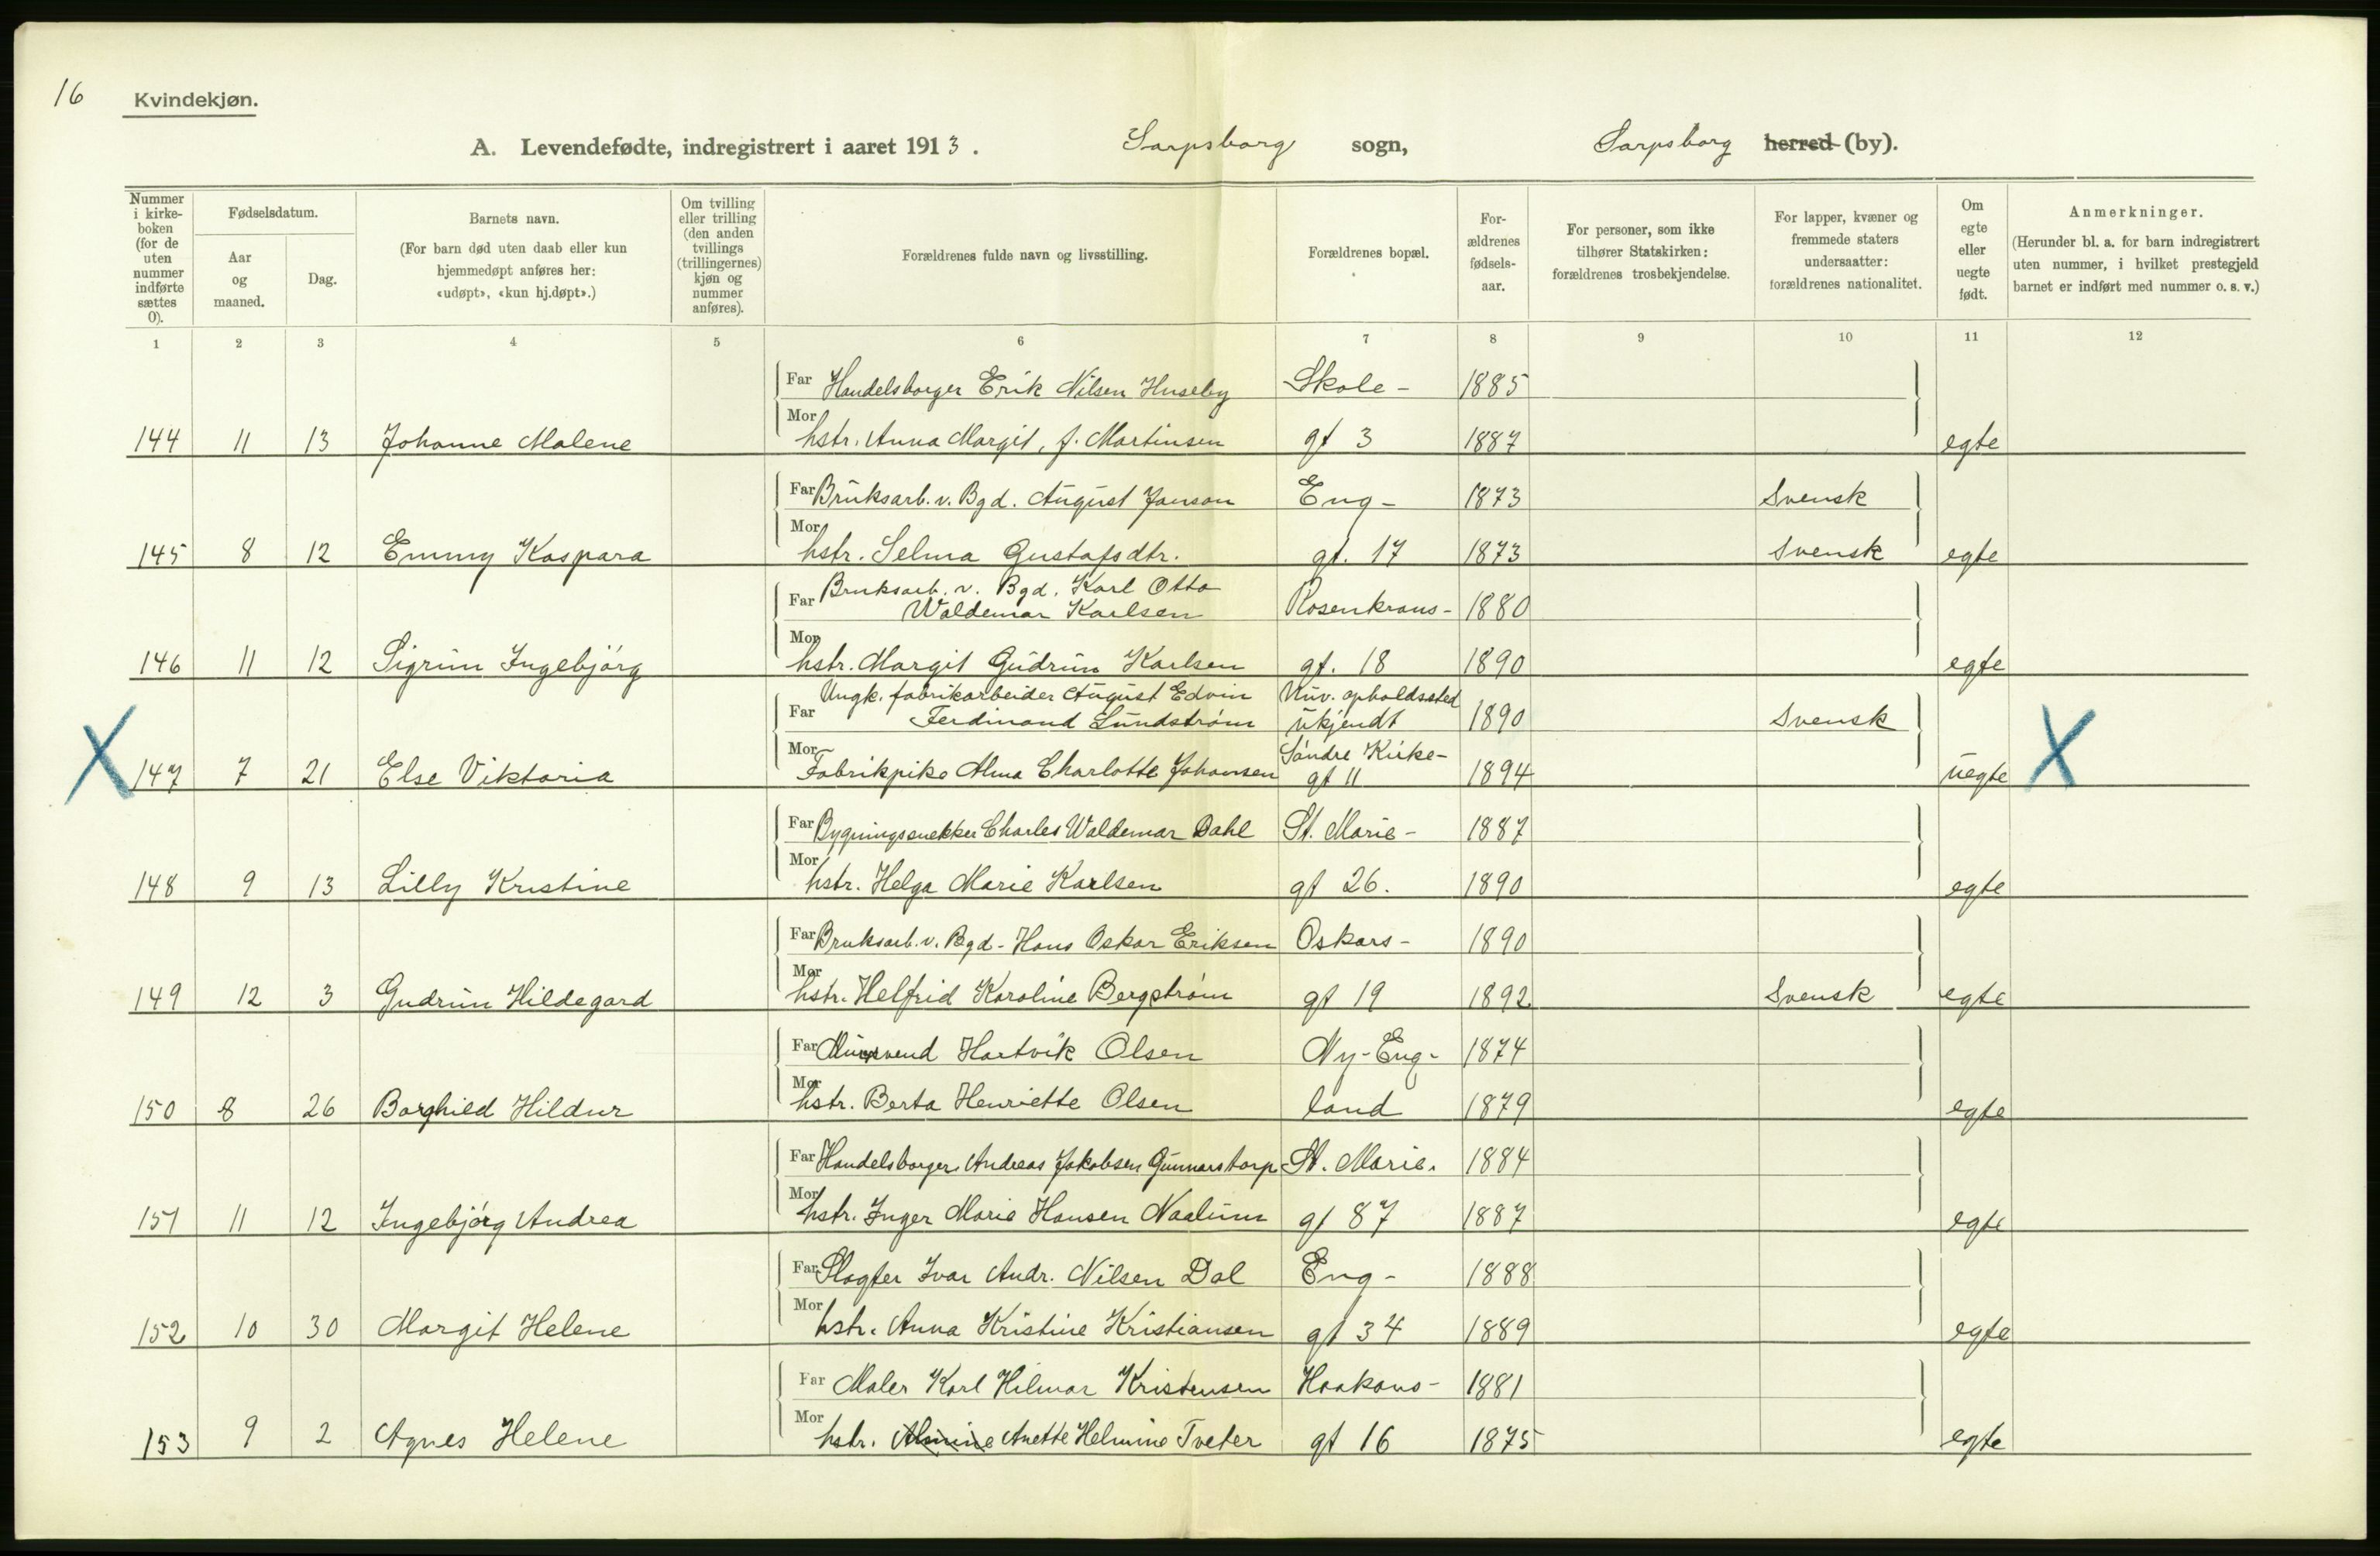 16 Kvindekjøn.
A. Levendefødte, indregistrert i aaret 1913. Sarpsborg sogn, Sarpsborg herred (by).
Nummer i kirkeboken (for de uten nummer indførte sættes 0).
Fødselsdatum.
Aar og maaned.
Dag.
Barnets navn.
(For barn død uten daab eller kun hjemmedøpt anføres her: «udøpt», «kun hj.døpt».)
Om tvilling eller trilling (den anden tvillings (trillingernes) kjøn og nummer anføres).
Forældrenes fulde navn og livsstilling.
Forældrenes bopæl.
For-ældrenes fødsels-aar.
For personer, som ikke tilhører Statskirken: forældrenes trosbekjendelse.
For lapper, kvæner og fremmede staters undersaatter: forældrenes nationalitet.
Om egte eller uegte født.
Anmerkninger.
(Herunder bl. a. for barn indregistrert uten nummer, i hvilket prestegjeld barnet er indført med nummer o. s. v.)
1 2 3 4 5 6 7 8 9 10 11 12
Far Handelsborger Erik Nilsen Huseby Skole- 1885
144 11 13 Johanne Malene Mor hstr. Anna Margit, f. Martinsen gt 3 1887 egte
Far Bruksarb. v. Bgd. August Janson Eng- 1873 Svensk
145 8 12 Emmy Kaspara Mor hstr. Selma Gustafsdtr. gt. 17 1873 Svensk egte
Far Bruksarb. v. Bgd. Karl Otto
Waldemar Karlsen Rosenkrans- 1880
146 11 12 Sigrun Ingebjørg Mor hstr. Margit Gudrun Karlsen gt. 18 1890 egte
Far Ungk. fabrikarbeider August Edvin Nuv. opholdssted
Ferdinand Lundstrøm ukjendt 1890 Svensk
X 147 7 21 Else Viktoria Mor Fabrikpike Alma Charlotte Johansen Søndre Kirke-
gt 11 1894 uegte X
Far Bygningssnekker Charles Waldemar Dahl St. Marie- 1887
148 9 13 Lilly Kristine Mor hstr. Helga Marie Karlsen gt 26. 1890 egte
Far Bruksarb. v. Bgd- Hans Oskar Eriksen Oskars- 1890
149 12 3 Gudrun Hildegard Mor hstr. Helfrid Karoline Bergstrøm gt 19 1892 Svensk egte
Far Hartvik Olsen Ny-Eng- 1874
150 8 26 Borghild Hildur Mor hstr. Berta Henriette Olsen land 1879 egte
Far Handelsborger Andreas Jakobsen Gunnarstorp St. Marie. 1884
151 11 12 Ingebjørg Andrea Mor hstr. Inger Marie Hansen Naalum gt 87 1887 egte
Far Slagter Ivar Andr. Nilsen Dal Eng- 1888
152 10 30 Margit Helene Mor hstr. Anna Kristine Kristiansen gt 34 1889 egte
Far Maler Karl Hilmar Kristensen Haakons- 1881
153 9 2 Agnes Helene Mor hstr. Anette Helmine Tveter gt 16 1875 egte